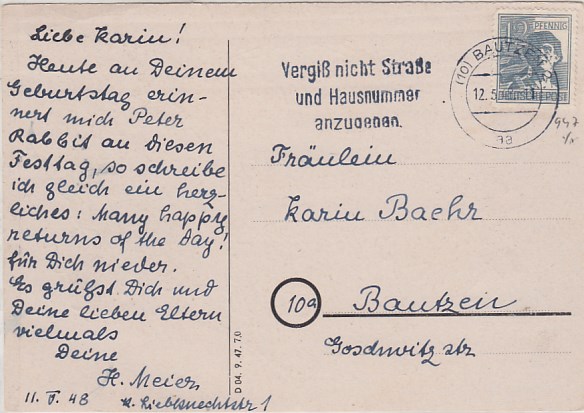 Liebe Karin!
Heute an Deinem
Geburtstag erin-
nert mich Peter
Rabbit an diesen
Festtag, so schreibe
ich gleich ein herz-
liches: Many happy
returns of the Day!
für Dich nieder.
Es grüßt Dich und
Deine lieben Eltern
vielmals
Deine
H. Meier
11. V. 48 K. Liebknechtstr 1
D 04. 9. 47. 7,0
Vergiß nicht Straße
und Hausnummer
anzugeben.
(10) BAUTZEN
12.5
aa
12 PFENNIG
DEUTSCHE POST
947
Fräulein
Karin Baehr
10a Bautzen
Goschwitzstr